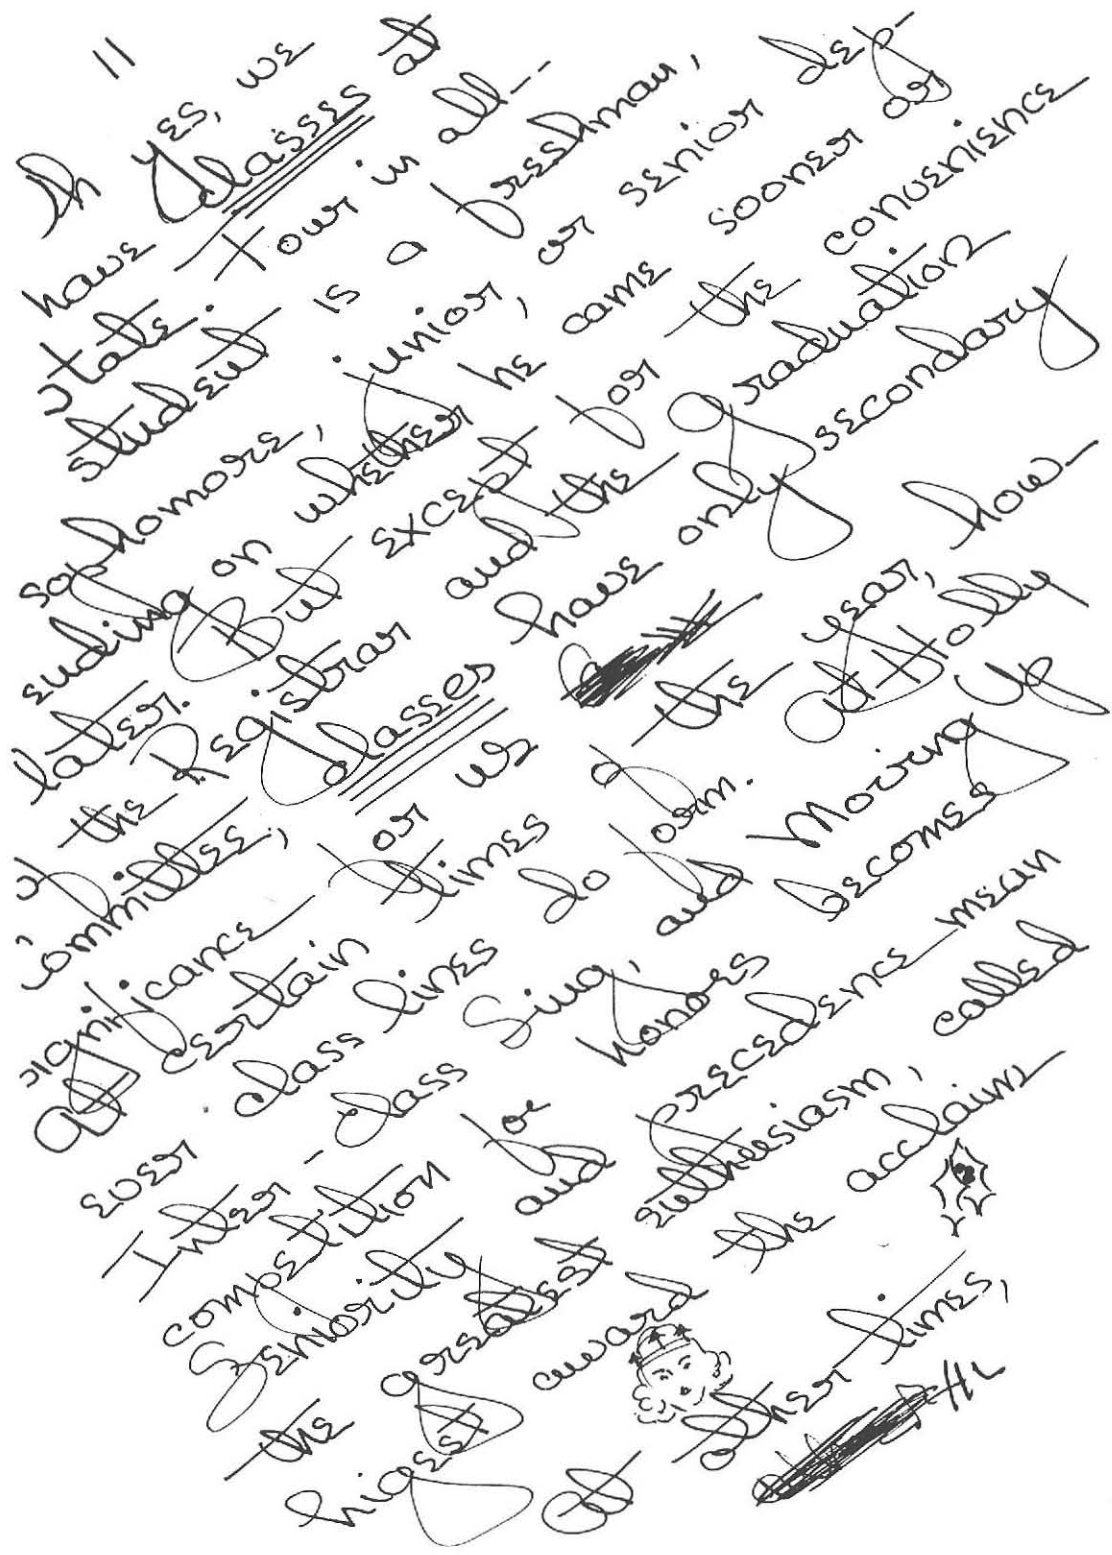 11
Ah yes, we
have Classes at
State. Four in all--
student is a freshman,
sophomore, junior, or senior dep-
ending on whether he came sooner or
later. But except for the convenience
of the Registrar and the graduation
Committee, Classes have only secondary
significance for us
At certain times of the year, how-
ever class lines do form. At Holly
Inter-class Sing, and Moving Up
competition for honors becomes
Seniority and precedence mean
the greatest enthusiasm, called
higest award the acclaim
At other times,